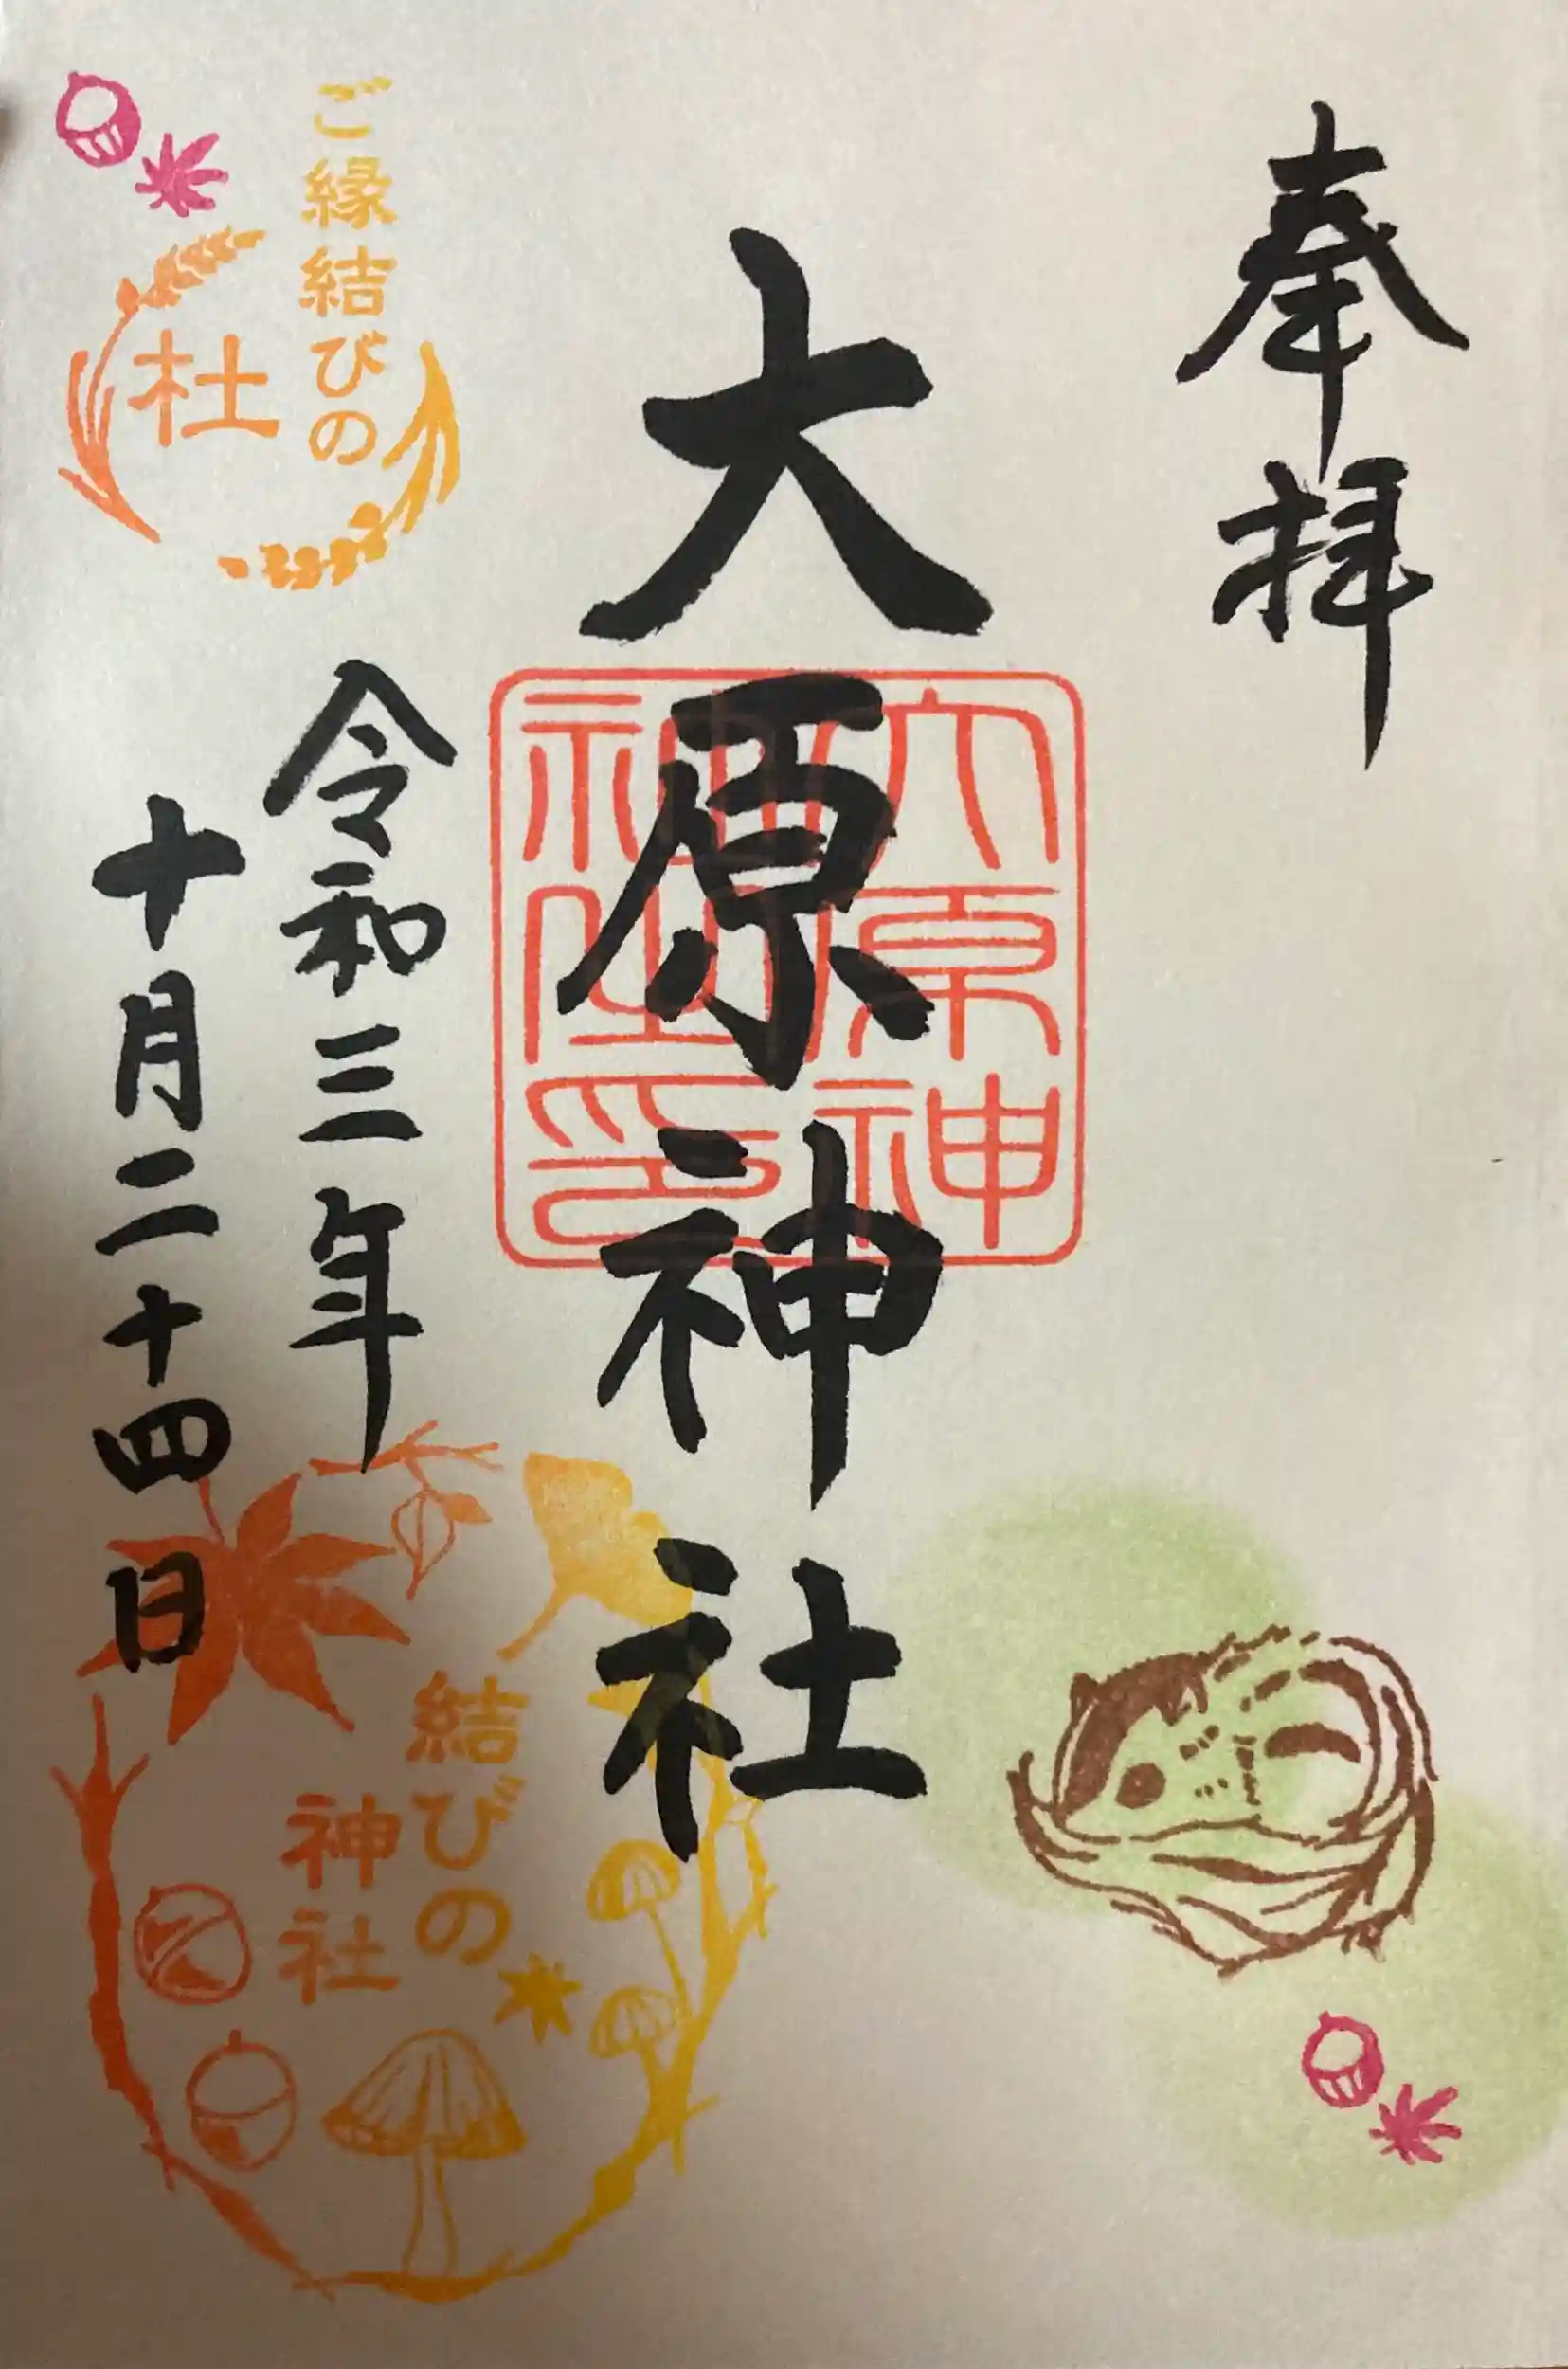 奉拝
大原神社
大原神社之印
ご縁結びの
杜
令和三年
十月二十四日
結びの
神社